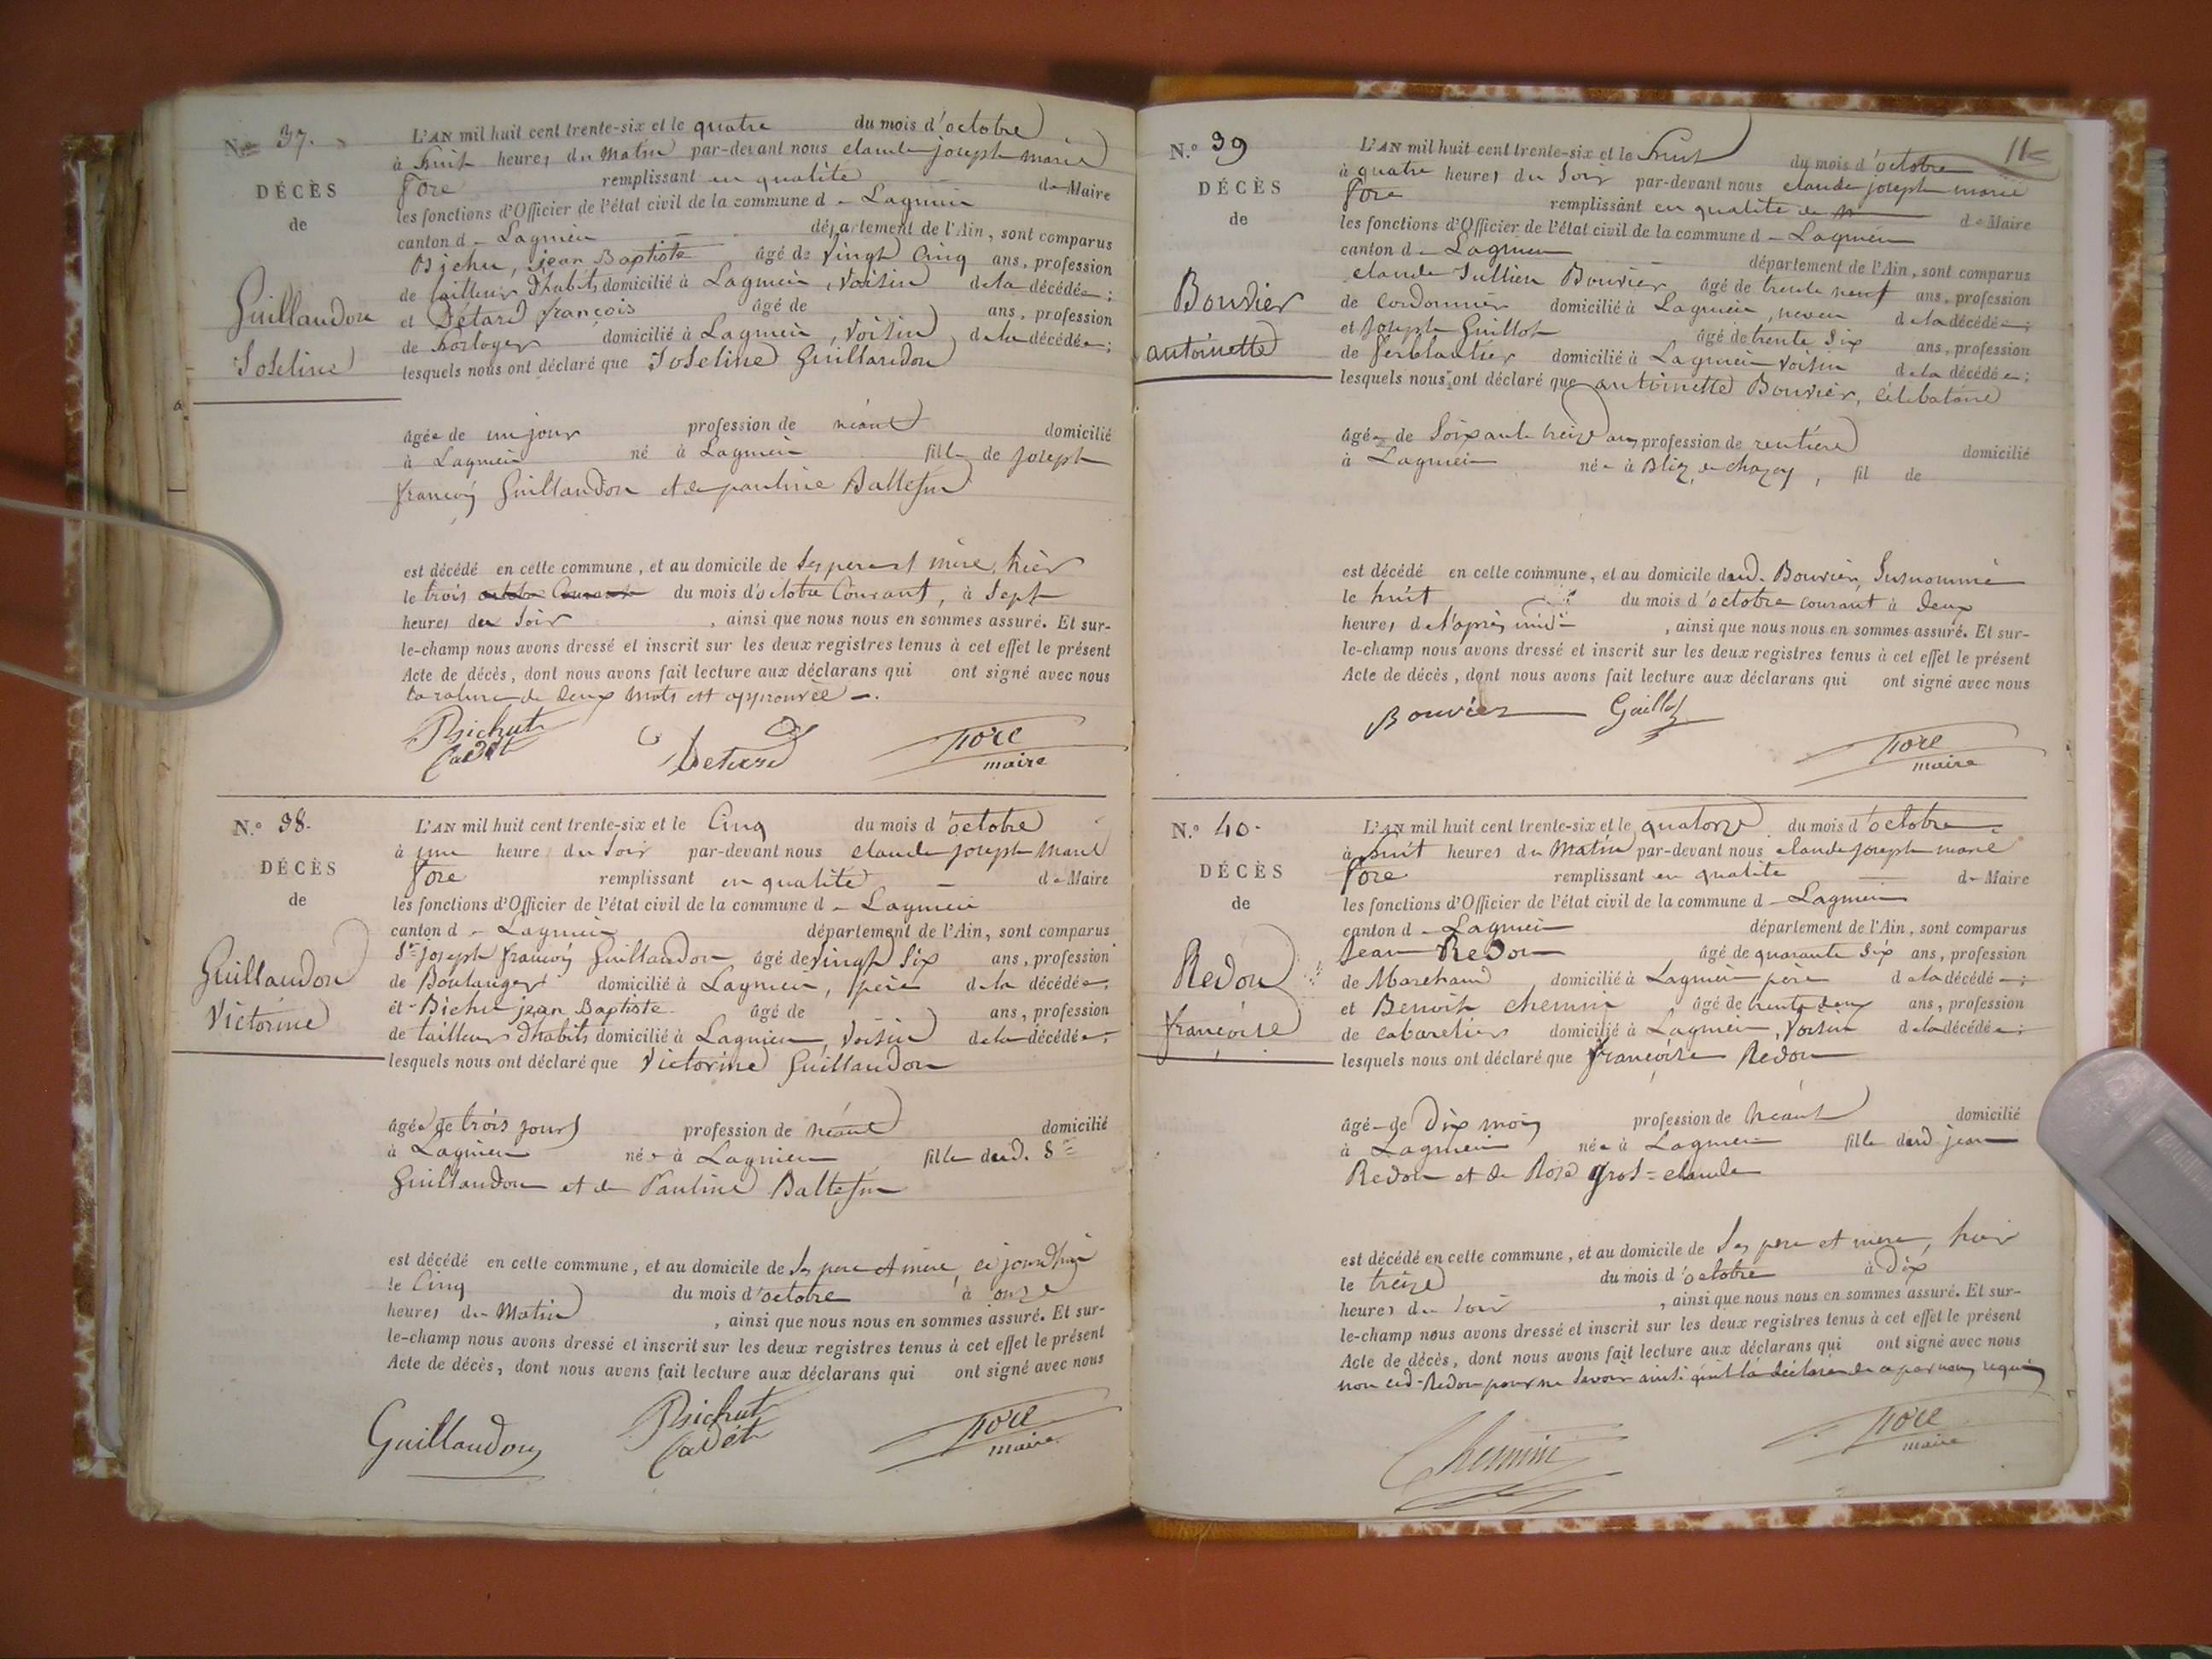 N.° 37.
DÉCÈS
de
Guillaudon
Joseline
L'AN mil huit cent trente-six et le quatre du mois d'octobre
à huit heures du Matin par-devant nous claude joseph marie
fore remplissant en qualité de Maire
les fonctions d'Officier de l'état civil de la commune d - Lagnieu
canton d - Lagnieu département de l'Ain, sont comparus
jean Baptiste âgé de Vingt Cinq ans, profession
de tailleur d'habits domicilié à Lagnieu, Voisin de la décédée;
et Détard françois âgé de ans, profession
de horloger domicilié à Lagnieu, Voisin de la décédée;
lesquels nous ont déclaré que Joseline Guillaudon
âgée de un jour profession de néant domicilié
à Lagnieu né à Lagnieu fille de joseph
françois Guillaudon et de pauline
est décédé en cette commune, et au domicile de ses pere et mère, hier
le trois octobre Courant du mois d'octobre Courant, à Sept
heures du Soir, ainsi que nous nous en sommes assuré. Et sur-
le-champ nous avons dressé et inscrit sur les deux registres tenus à cet effet le présent
Acte de décès, dont nous avons fait lecture aux déclarans qui ont signé avec nous
la rature de deux mots est approuvée -.
cadet
fore
maire
N.° 38.
DÉCÈS
de
Guillaudon
Victorine
L'AN mil huit cent trente-six et le Cinq du mois d'octobre
à une heure du Soir par-devant nous claude joseph marie
fore remplissant en qualité de Maire
les fonctions d'Officier de l'état civil de la commune d - Lagnieu
canton d - Lagnieu département de l'Ain, sont comparus
Sr joseph françois Guillaudon âgé de Vingt Six ans, profession
de Boulanger domicilié à Lagnieu, père de la décédée;
et jean Baptiste âgé de ans, profession
de tailleur d'habits domicilié à Lagnieu, Voisin de la décédée;
lesquels nous ont déclaré que Victorine Guillaudon
âgée de trois jours profession de néant domicilié
à Lagnieu née à Lagnieu fille dud. Sr
Guillaudon et de Pauline
est décédé en cette commune, et au domicile de ses pere et mère, ce jourd'hui
le Cinq du mois d'octobre à onze
heures du Matin, ainsi que nous nous en sommes assuré. Et sur-
le-champ nous avons dressé et inscrit sur les deux registres tenus à cet effet le présent
Acte de décès, dont nous avons fait lecture aux déclarans qui ont signé avec nous
Guillaudon
cadet
fore
maire
11
N.° 39
DÉCÈS
de
Bouvier
antoinette
L'AN mil huit cent trente-six et le huit du mois d'octobre
à quatre heures du Soir par-devant nous claude joseph marie
fore remplissant en qualité de de Maire
les fonctions d'Officier de l'état civil de la commune d - Lagnieu
canton d - Lagnieu département de l'Ain, sont comparus
claude Jullien Bouvier âgé de trente neuf ans, profession
de cordonnier domicilié à Lagnieu, neveu de la décédée;
et joseph Guillot âgé de trente Six ans, profession
de ferblantier domicilié à Lagnieu Voisin de la décédée;
lesquels nous ont déclaré que antoinette Bouvier, célibataire
âgée de Soixante treize ans profession de rentière domicilié
à Lagnieu née à Bliz, en chazey, fil de
est décédé en cette commune, et au domicile dud. Bouvier, Susnommé
le huit du mois d'octobre courant à deux
heures de l'après midi, ainsi que nous nous en sommes assuré. Et sur-
le-champ nous avons dressé et inscrit sur les deux registres tenus à cet effet le présent
Acte de décès, dont nous avons fait lecture aux déclarans qui ont signé avec nous
Bouvier
Guillot
fore
maire
N.° 40.
DÉCÈS
de
Redon
françoise
L'AN mil huit cent trente-six et le quatorze du mois d'octobre
à huit heures du Matin par-devant nous claude joseph marie
fore remplissant en qualité de Maire
les fonctions d'Officier de l'état civil de la commune d - Lagnieu
canton d - Lagnieu département de l'Ain, sont comparus
Jean Redon âgé de quarante Six ans, profession
de Marchand domicilié à Lagnieu père de la décédée;
et Benoit chemin âgé de trente deux ans, profession
de cabaretier domicilié à Lagnieu, Voisin de la décédée;
lesquels nous ont déclaré que françoise Redon
âgée de Dix mois profession de néant domicilié
à Lagnieu née à Lagnieu fille dud jean
Redon et de Rose gros=claude
est décédé en cette commune, et au domicile de Ses pere et mere, hier
le treize du mois d'octobre à dix
heures du Soir, ainsi que nous nous en sommes assuré. Et sur-
le-champ nous avons dressé et inscrit sur les deux registres tenus à cet effet le présent
Acte de décès, dont nous avons fait lecture aux déclarans qui ont signé avec nous
non led-Redon pour ne Savoir ainsi qu'il l'a déclaré de ce par nous requis
Chemin
fore
maire